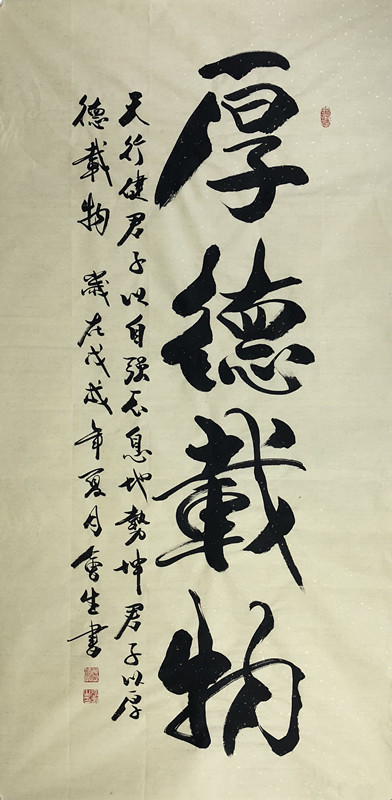 厚德載物
天行健君子以自強不息地勢坤君子以厚
德載物 歲在戊戌年夏月會生書